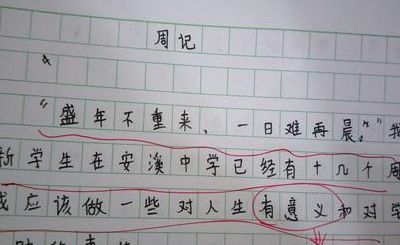 周记
“盛年不重来，一日难再晨。”我
新学生在安溪中学已经有十几个周
我应该做一些对人生有意义和对学